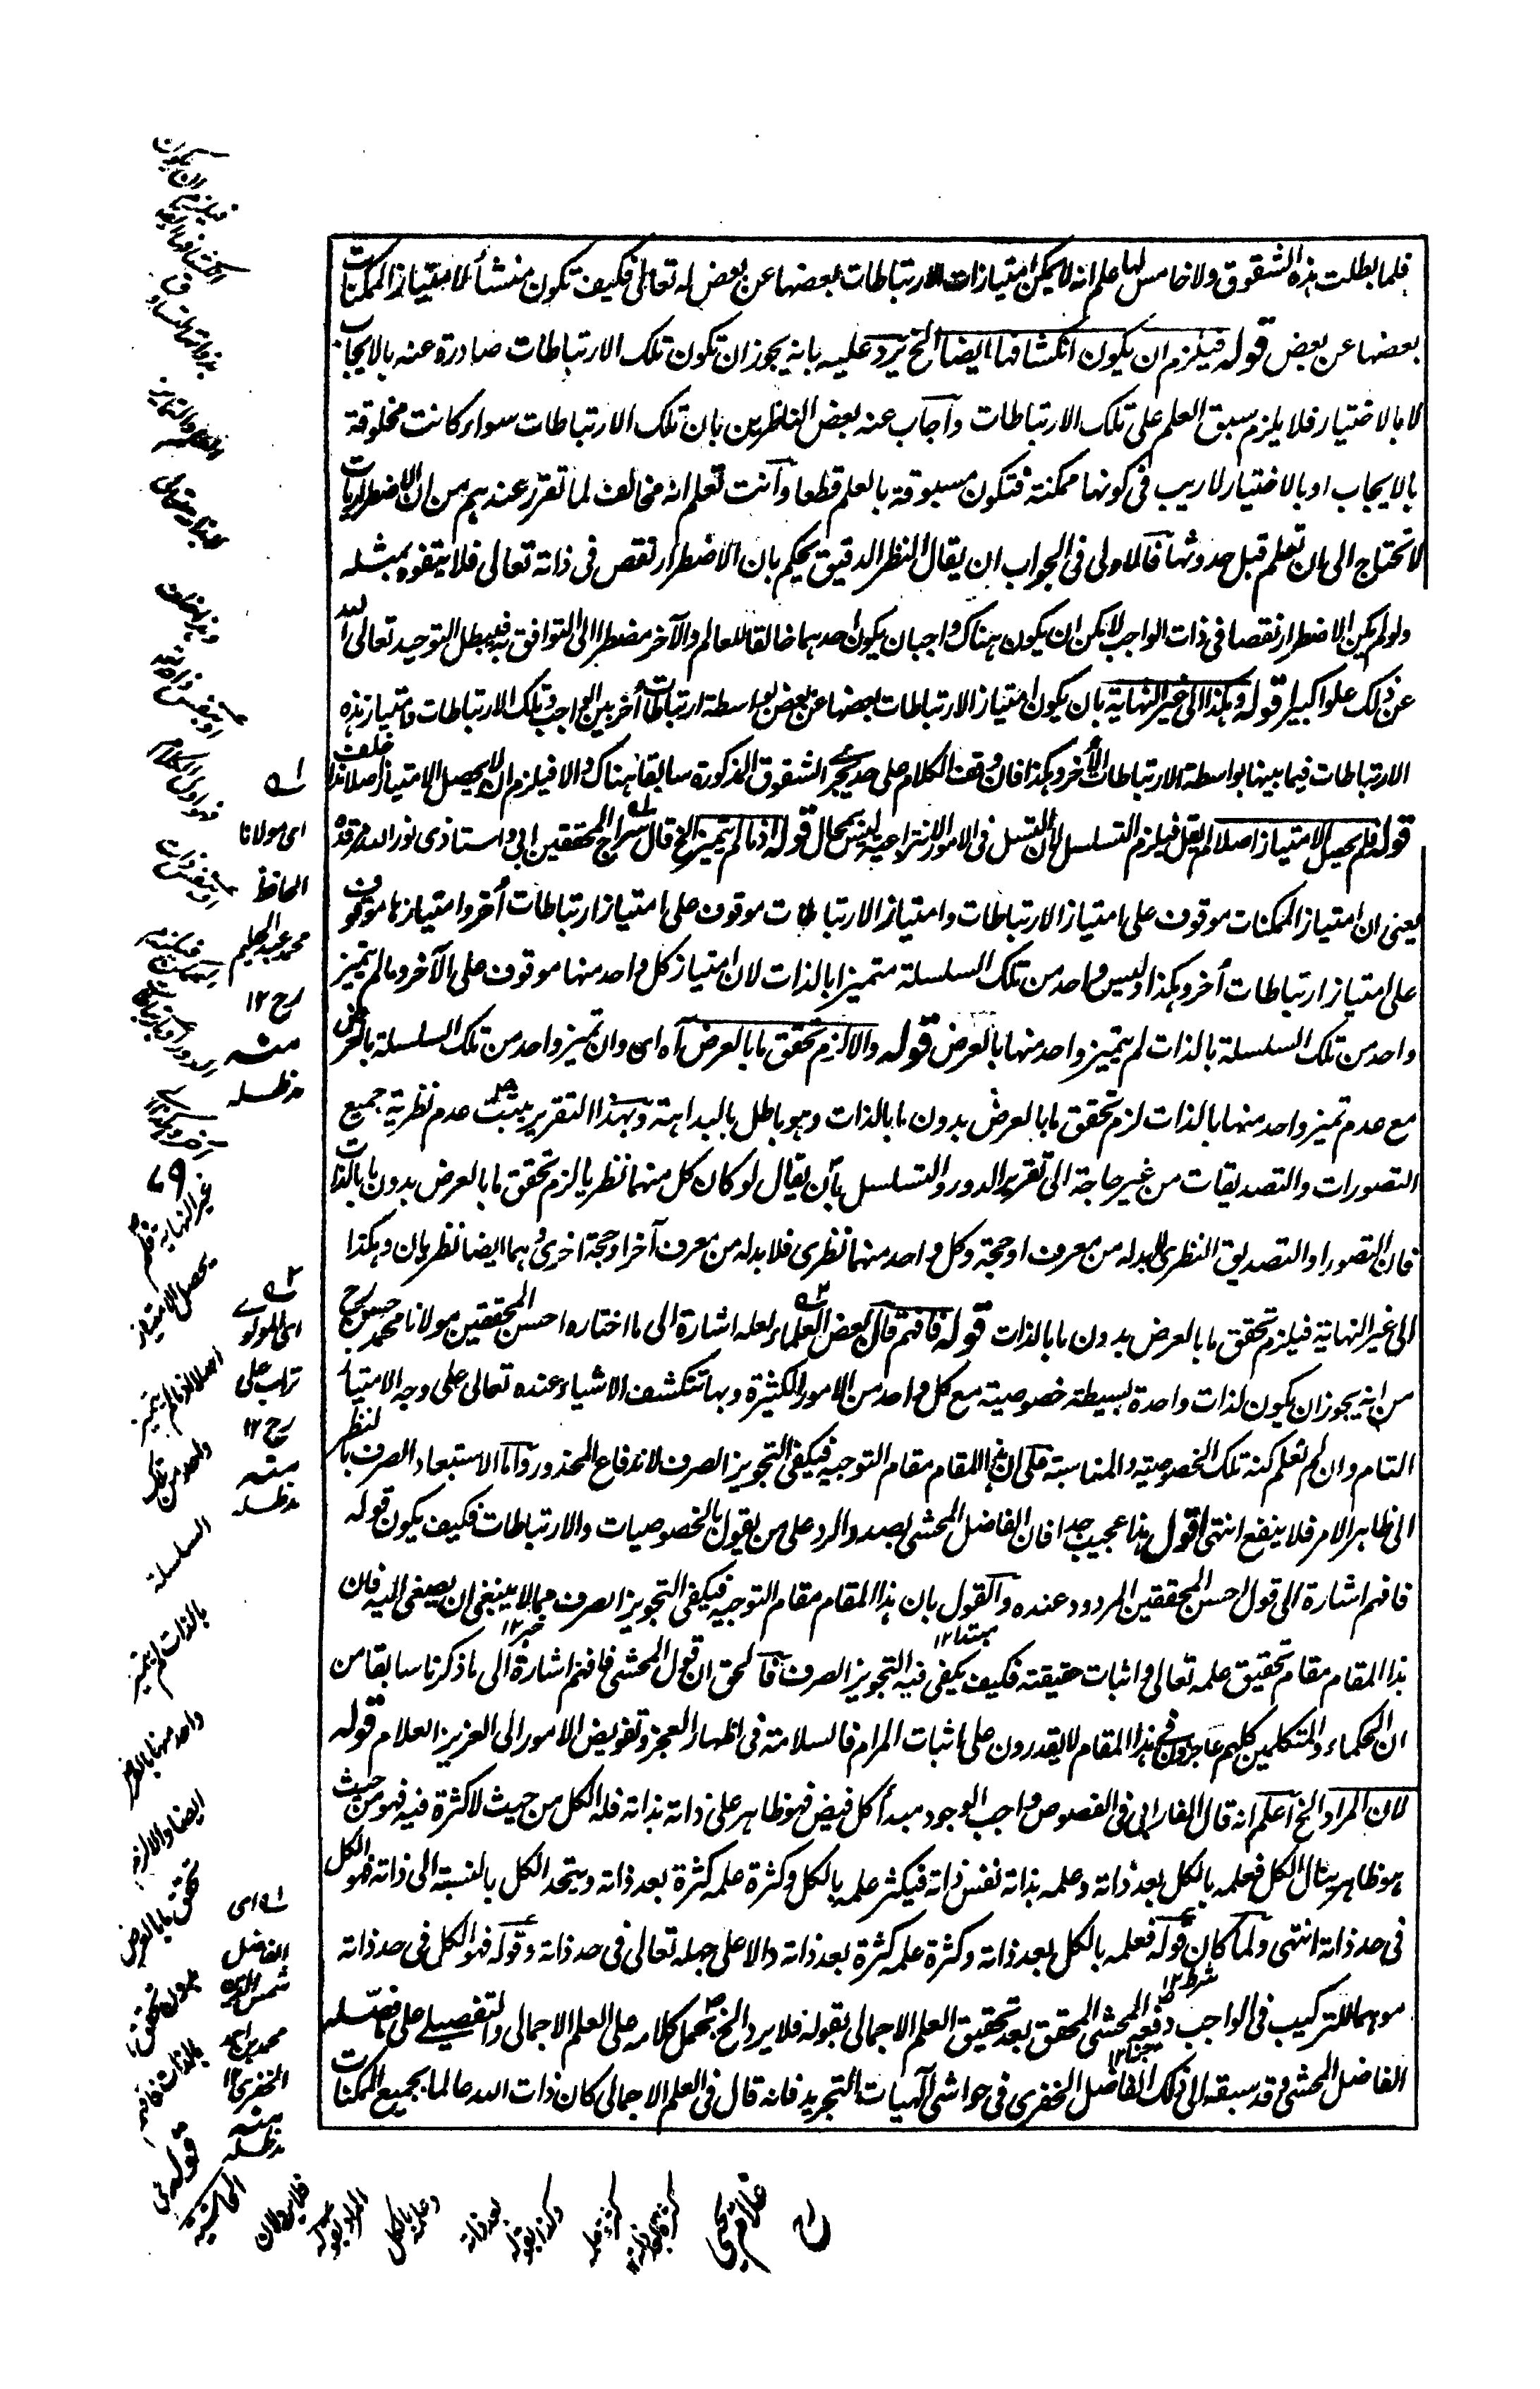 فلما بطلت هذه الشقوق ولا خامس لها علم انه لا يمكن امتيازات الارتباطات بعضها عن بعض له تعالى فكيف تكون منشأ لامتياز الممكنات
بعضها عن بعض قوله فيلزم ان يكون انكشافها ايضا الخ يرد عليه بانه يجوز ان تكون تلك الارتباطات صادرة عنه بالايجاب
لا بالاختيار فلا يلزم سبق العلم على تلك الارتباطات واجاب عنه بعض الناظرين بان تلك الارتباطات سواء كانت مخلوقة
بالايجاب او بالاختيار لا ريب فى كونها ممكنة فتكون مسبوقة بالعلم قطعا وانت تعلم انه مخالف لما تقرر عندهم من ان الاضطراريات
لا تحتاج الى ان تعلم قبل حدوثها فالاولى فى الجواب ان يقال النظر الدقيق يحكم بان الاضطرار نقص فى ذاته تعالى فلا يتفوه بمثله
ولو لم يكن الاضطرار نقصا فى ذات الواجب لامكن ان يكون هناك واجبان يكون احدهما خالقا للعالم والآخر مضطرا الى التوافق به فيبطل التوحيد تعالى الله
عن ذلك علوا كبيرا قوله وهكذا الى غير النهاية بان يكون امتياز الارتباطات بعضها عن بعض بواسطة ارتباطات أخر بين الواجب وتلك الارتباطات وامتياز هذه
الارتباطات فيما بينها بواسطة الارتباطات الأخر وهكذا فان وقف الكلام على حد يجر الشقوق المذكورة سابقا هناك والا فيلزم ان لا يحصل الامتياز اصلا هذا خلف
قوله فلم يحصل الامتياز اصلا لم يقل فيلزم التسلسل لان التسلسل فى الامور الانتزاعية ليس بمحال قوله اذ ما لم يتميز الخ قال سراج المحققين ابى واستاذى نور الله مرقده
يعنى ان امتياز الممكنات موقوف على امتياز الارتباطات وامتياز الارتباطات موقوف على امتياز ارتباطات أخر وامتيازها موقوف
على امتياز ارتباطات أخر وهكذا وليس واحد من تلك السلسلة متميزا بالذات لان امتياز كل واحد منها موقوف على الآخر وما لم يتميز
واحد من تلك السلسلة بالذات لم يتميز واحد منها بالعرض قوله والا لزم تحقق ما بالعرض آه اى وان تميز واحد من تلك السلسلة بالعرض
مع عدم تميز واحد منها بالذات لزم تحقق ما بالعرض بدون ما بالذات وهو باطل بالبداهة وبهذا التقرير يثبت عدم نظرية جميع
التصورات والتصديقات من غير حاجة الى تقرير الدور والتسلسل بأن يقال لو كان كل منهما نظريا لزم تحقق ما بالعرض بدون ما بالذات
فان التصور او التصديق النظرى لا بد له من معرف او حجة وكل واحد منهما نظرى فلا بد له من معرف آخر او حجة اخرى وهما ايضا نظريان وهكذا
الى غير النهاية فيلزم تحقق ما بالعرض بدون ما بالذات قوله فافهم قال بعض العلماء لعله اشارة الى ما اختاره احسن المحققين مولانا محمد حسن رح
من انه يجوز ان يكون لذات واحدة بسيطة خصوصية مع كل واحد من الامور الكثيرة وبها تنكشف الاشياء عنده تعالى على وجه الامتياز
التام وان لم نعلم كنه تلك الخصوصية والمناسبة على ان هذا المقام مقام التوجيه فيكفى التجويز الصرف لاندفاع المحذور واما الاستبعاد الصرف بالنظر
الى ظاهر الامر فلا ينفع انتهى اقول هذا عجيب جدا فان الفاضل المحشى بصدد الرد على من يقول بالخصوصيات والارتباطات فكيف يكون قوله
فافهم اشارة الى قول احسن المحققين المردود عنده والقول بان هذا المقام مقام التوجيه فيكفى التجويز الصرف مما لا ينبغى ان يصغى اليه فان
مبتدا ١٢ خبر ١٢
هذا المقام مقام تحقيق علمه تعالى واثبات حقيقته فكيف يكفى فيه التجويز الصرف فالحق ان قول المحشى فافهم اشارة الى ما ذكرنا سابقا من
ان الحكماء والمتكلمين كلهم عاجزون فى هذا المقام لا يقدرون على اثبات المرام فالسلامة فى اظهار العجز وتفويض الامور الى العزيز العلام قوله
لان المراد الخ اعلم انه قال الفارابى فى الفصوص واجب الوجود مبدأ كل فيض فهو ظاهر على ذاته بذاته فله الكل من حيث لا كثرة فيه فهو من حيث
هو ظاهر ينال الكل فعلمه بالكل بعد ذاته وعلمه بذاته نفس ذاته فيكثر علمه بالكل وكثرة علمه كثرة بعد ذاته ويتحد الكل بالنسبة الى ذاته فهو الكل
فى حد ذاته انتهى ولما كان قوله فعلمه بالكل بعد ذاته وكثرة علمه كثرة بعد ذاته دالا على جهله تعالى فى حد ذاته وقوله فهو الكل فى حد ذاته
شرط ١٢
موهما للتركيب فى الواجب دفعه المحشى المحقق بعد تحقيق العلم الاجمالى بقوله فلا يرد الخ بحمل كلامه على العلم الاجمالى والتفصيلى على ما فصله
جزا ١٢
الفاضل المحشى وقد سبقه الى ذلك الفاضل الخفرى فى حواشى آلهيات التجريد فانه قال فى العلم الاجمالى كان ذات الله عالما بجميع الممكنات
له
اى مولانا
الحافظ
محمد عبد الحليم
رح ١٢
منه
مدظله
٦٩
غير النهاية فلم
يحصل الامتياز
اصلا اذ ما لم يتميز
واحد من تلك
السلسلة
بالذات لم يتميز
واحد منها بالعرض
ايضا والا لزم
تحقق ما بالعرض
بدون تحقق ما
بالذات فافهم
قوله فى
الحاشية
فلا يرد لان
المراد بقوله
وعلمه بالكل
بعد ذاته
وكذا بقوله
كثرة علمه
كثرة بعد ذاته
غلام يحيى
٢ه
اى المولوى
تراب على
رح ١٢
منه
مدظله
له اى
الفاضل
شمس الدين
محمد بن احمد
الخفرى ١٢
منه
مدظله